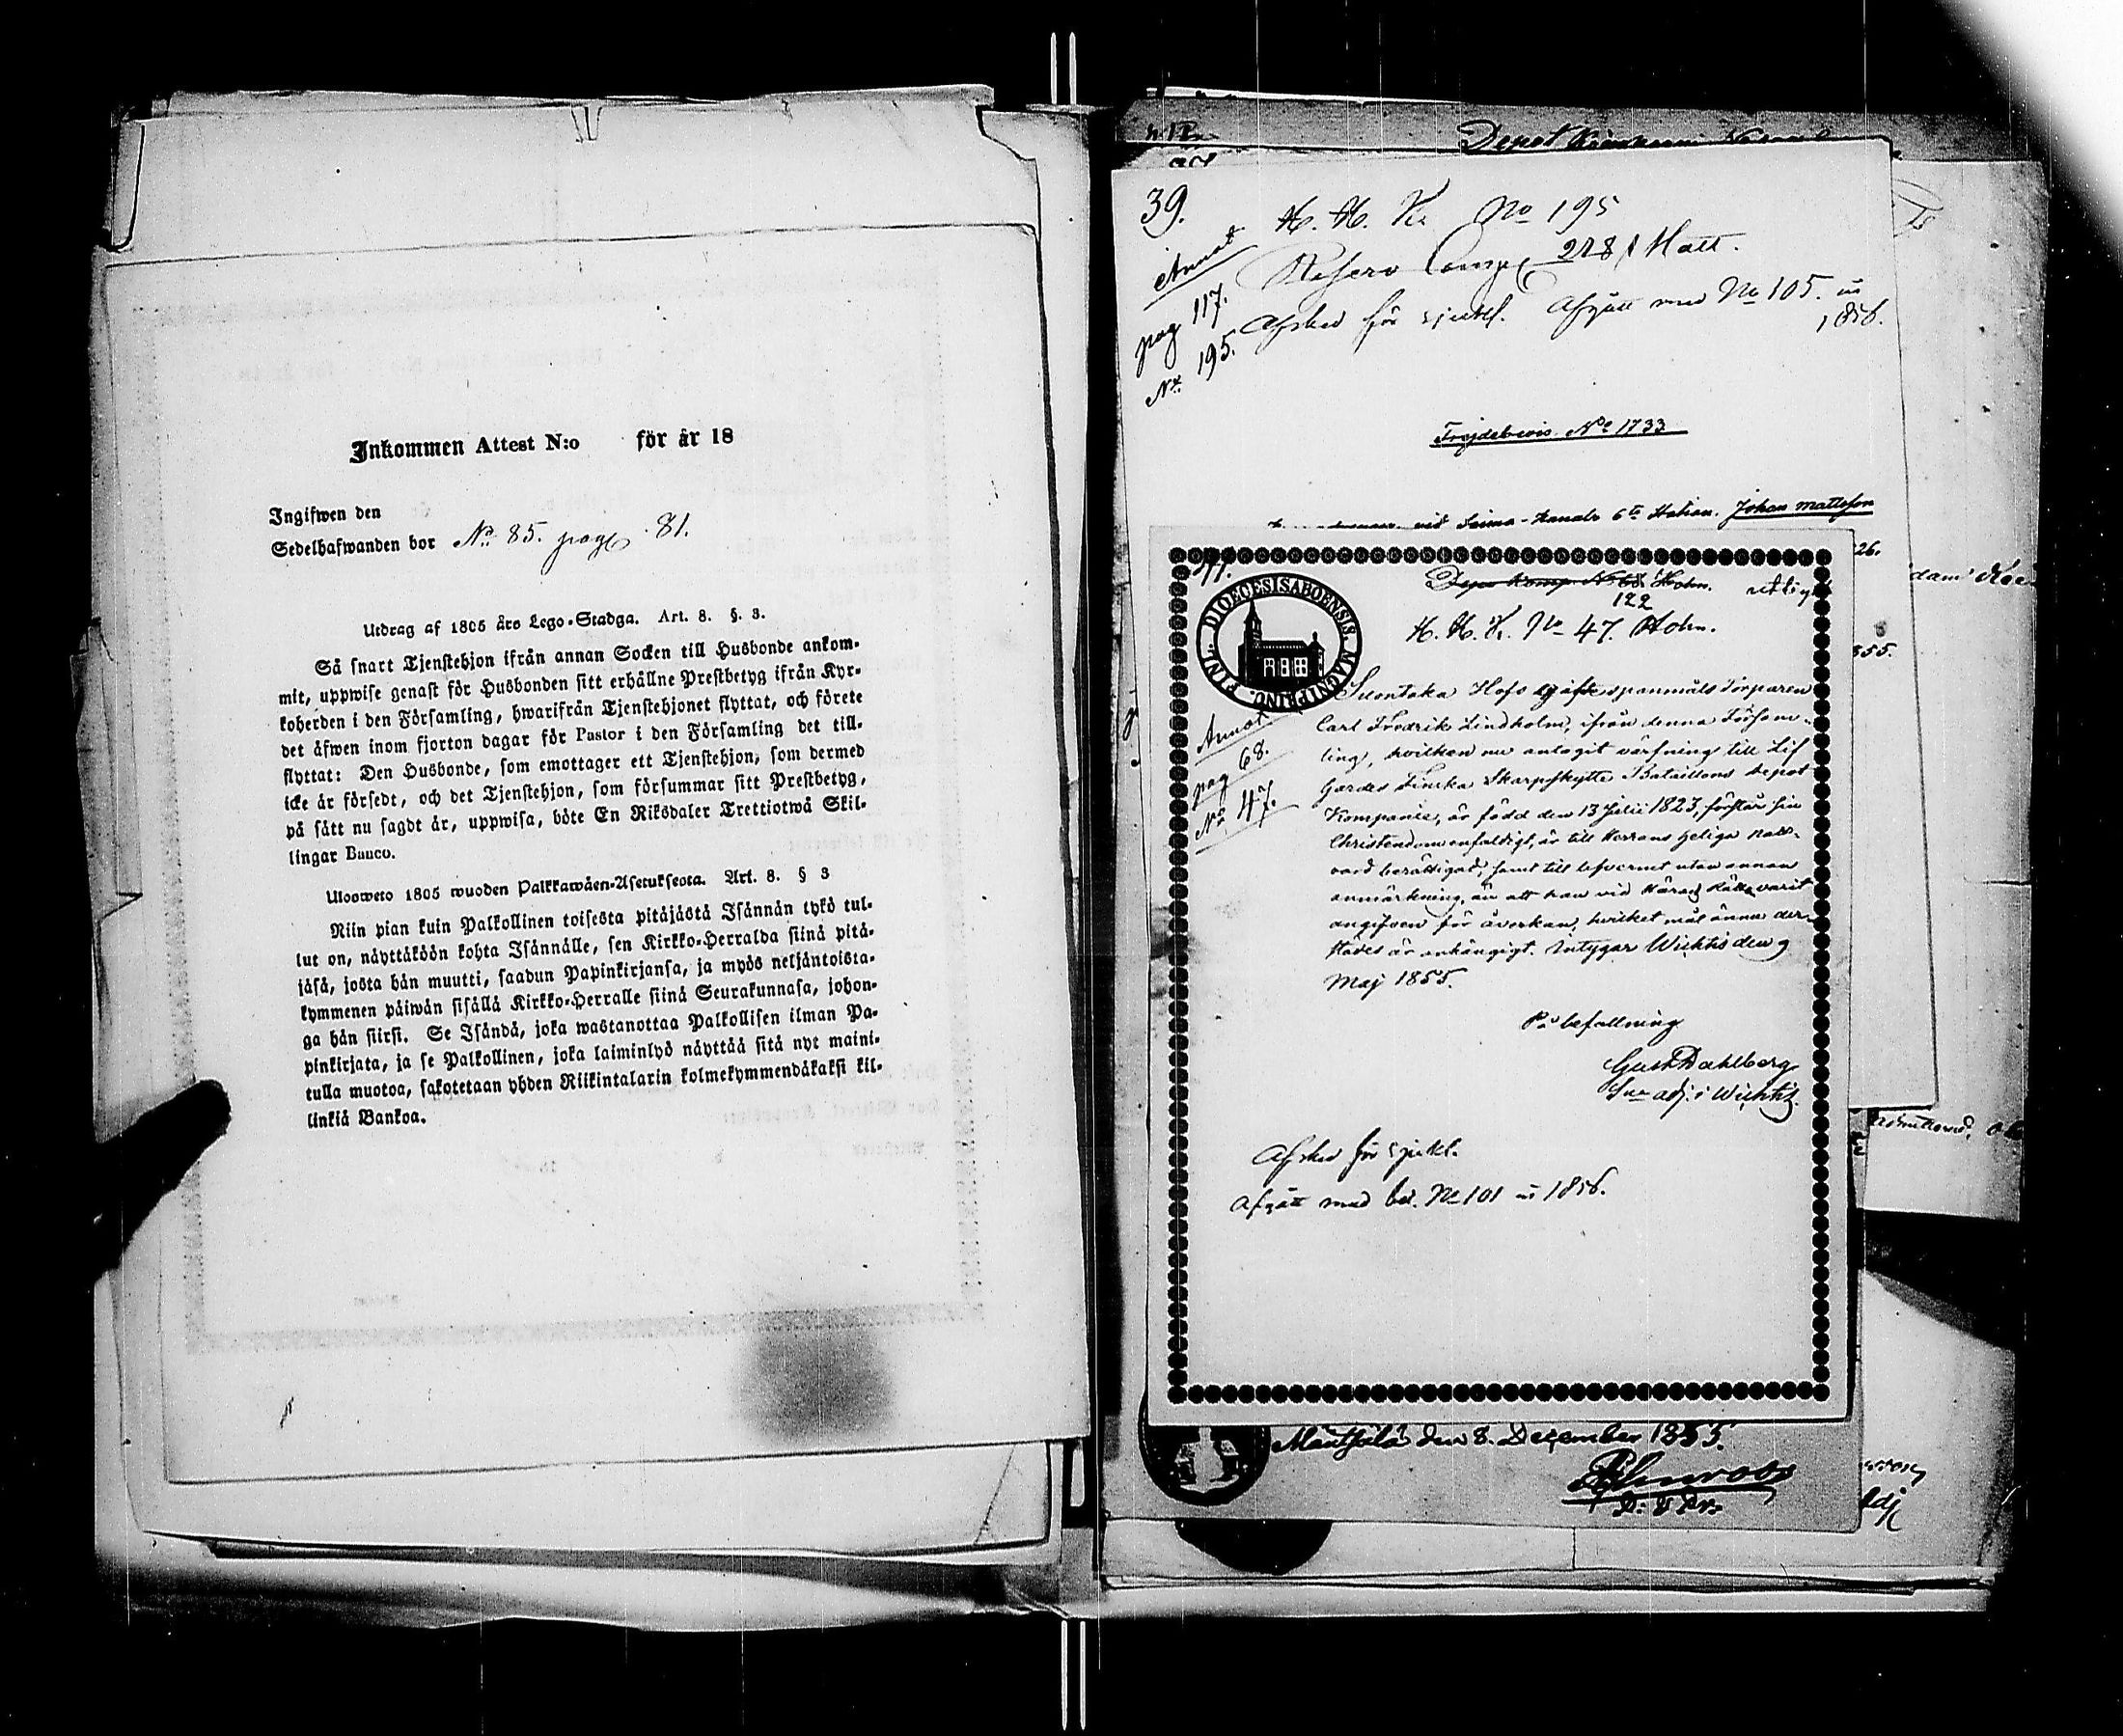 Inkommen Attest N:o för år 18
Ingifwen den
Sedelhafwanden bor No 85. pag 81.
Utdrag af 1805 års Lego-Stadga. Art. 8. §. 3.
Så snart Tjenstehjon ifrån annan Socken till Husbonde ankom-
mit, uppwise genast för Husbonden sitt erhållne Prestbetyg ifrån Kyr-
koherden i den Församling, hwarifrån Tjenstehjonet flyttat, och förete
det äfwen inom fjorton dagar för Pastor i den Församling det till-
flyttat: Den Husbonde, som emottager ett Tjenstehjon, som dermed
icke är försedt, och det Tjenstehjon, som försummar sitt Prestbetyg,
på sätt nu sagdt är, uppwisa, böte En Riksdaler Trettiotwå Skil-
lingar Banco.
Ulosweto 1805 wuoden Palkkawäen-Asetuksesta. Art. 8. § 3
Niin pian kuin Palkollinen toisesta pitäjästä Isännän tykö tul-
lut on, näyttäköön kohta Isännälle, sen Kirkko-Herralda siinä pitä-
jäsä, josta hän muutti, saadun Papinkirjansa, ja myös neljäntoista-
kymmenen päiwän sisällä Kirkko-Herralle siinä Seurakunnasa, johon-
ga hän siirsi. Se Isändä, joka wastanottaa Palkollisen ilman Pa-
pinkirjata, ja se Palkollinen, joka laiminlyö näyttää sitä nyt maini-
tulla muotoa, sakotetaan yhden Riikintalarin kolmekymmendäkaksi kil-
linkiä Bankoa.
39.
H. H. K. No 195
Annot
Reserv Comp 228 Matt.
pag 117.
Afsked för sjukl. Afgått med No 105. in
1856.
No 195.
Frejdebevis No 1733
vid Saima-Kanals 6te Station. Johan Mattsson
26.
855.
Depo Komp. No 68. Hohn.
122
H. H. K. No 47. Hohn.
DIOECESIS ABOENSIS. MAGNI PRINC. FINL.
Suontaka Hofs
Carl Fredrik Lindholm, ifrån denna Försam-
ling, hvilken nu antagit värfning till Lif
Annot
Gardes Finska Skarpskytte Bataillons Depot
pag 68.
Kompanie, är född den 13 Julii 1823, förstår sin
No 47.
Christendom enfaldigt, är till Herrans Heliga natt-
vard berättigad, samt till lefvernet utan annan
anmärkning, än att han vid Härads Rätt varit
angifven för åverkan, hvilket mål ännu der-
städes är anhängigt. Intygar Wichtis den 9
Maj 1855.
På befallning
Gust Dahlberg
adj. i Wichtis.
Afsked för sjukl.
Afgått med bet. No 101 in 1856.
Mäntsälä den 8. December 1855.